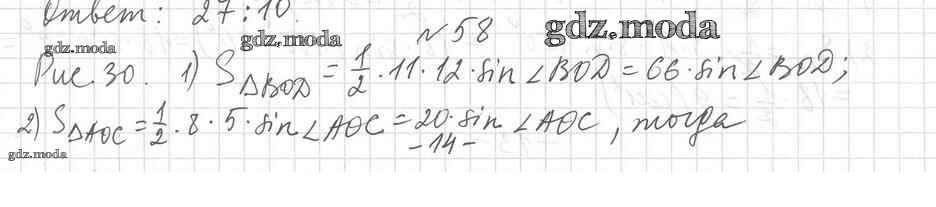 Ответ: 27:10.
№ 58
gdz.moda
gdz.moda
gdz.moda
Рис. 30. 1) S△BOD = 1/2 · 11 · 12 · sin ∠BOD = 66 · sin ∠BOD;
2) S△AOC = 1/2 · 8 · 5 · sin ∠AOC = 20 · sin ∠AOC, тогда
- 14 -
gdz.moda